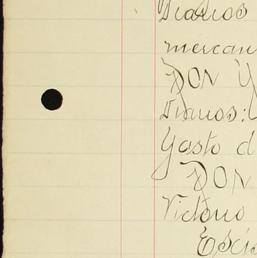 Diarios
mercan
DON Y
Diarios:
Gasto d
DON
Victorio
Escis